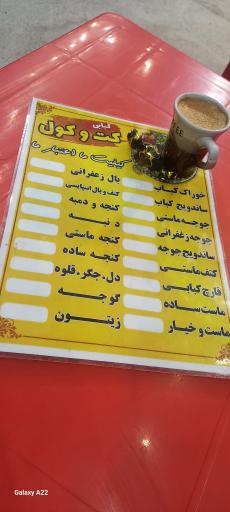 کبابی
کت و کول
کیفیت = اعتبار ما
خوراک کباب
ساندویچ کباب
جوجه ماستی
جوجه زعفرانی
ساندویچ جوجه
کتف ماستی
قارچ کبابی
ماست ساده
ماست و خیار
بال زعفرانی
کتف و بال اسپایسی
کنجه و دمبه
دنبه
کنجه ماستی
کنجه ساده
دل.جگر.قلوه
گوجه
زیتون
Galaxy A22